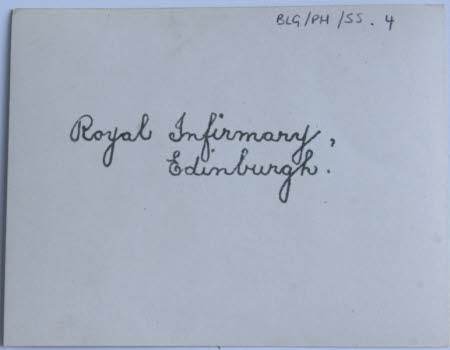 BLG/PH/SS. 4
Royal Infirmary,
Edinburgh.